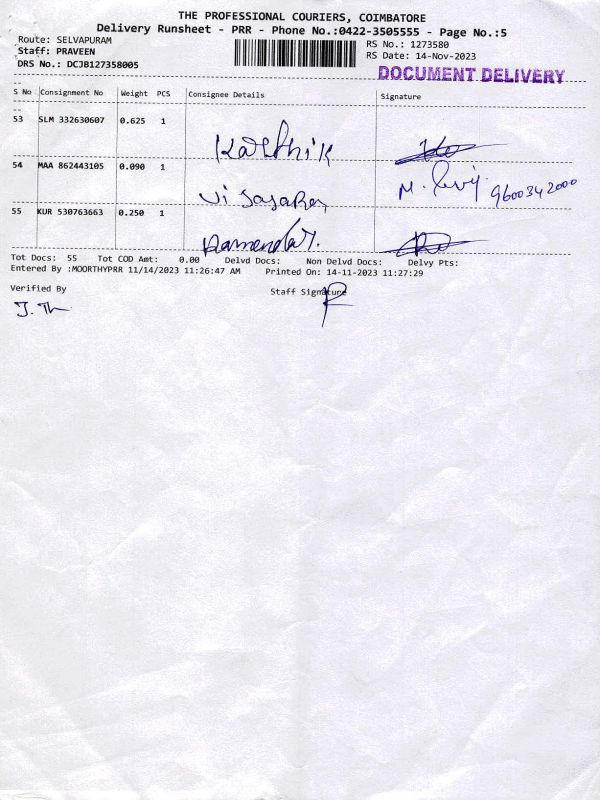 THE PROFESSIONAL COURIERS, COIMBATORE
Delivery Runsheet - PRR - Phone No.:0422-3505555 - Page No.:5
Route: SELVAPURAM
RS No.: 1273580
Staff: PRAVEEN
RS Date: 14-Nov-2023
DRS No.: DCJB127358005
DOCUMENT DELIVERY
S No Consignment No Weight PCS Consignee Details Signature
53 SLM 332630607 0.625 1 Karthik
54 MAA 862443105 0.090 1 M. 9600342000
55 KUR 530763663 0.250 1
Tot Docs: 55 Tot COD Amt: 0.00 Delvd Docs: Non Delvd Docs: Delvy Pts:
Entered By :MOORTHYPRR 11/14/2023 11:26:47 AM Printed On: 14-11-2023 11:27:29
Verified By Staff Signature